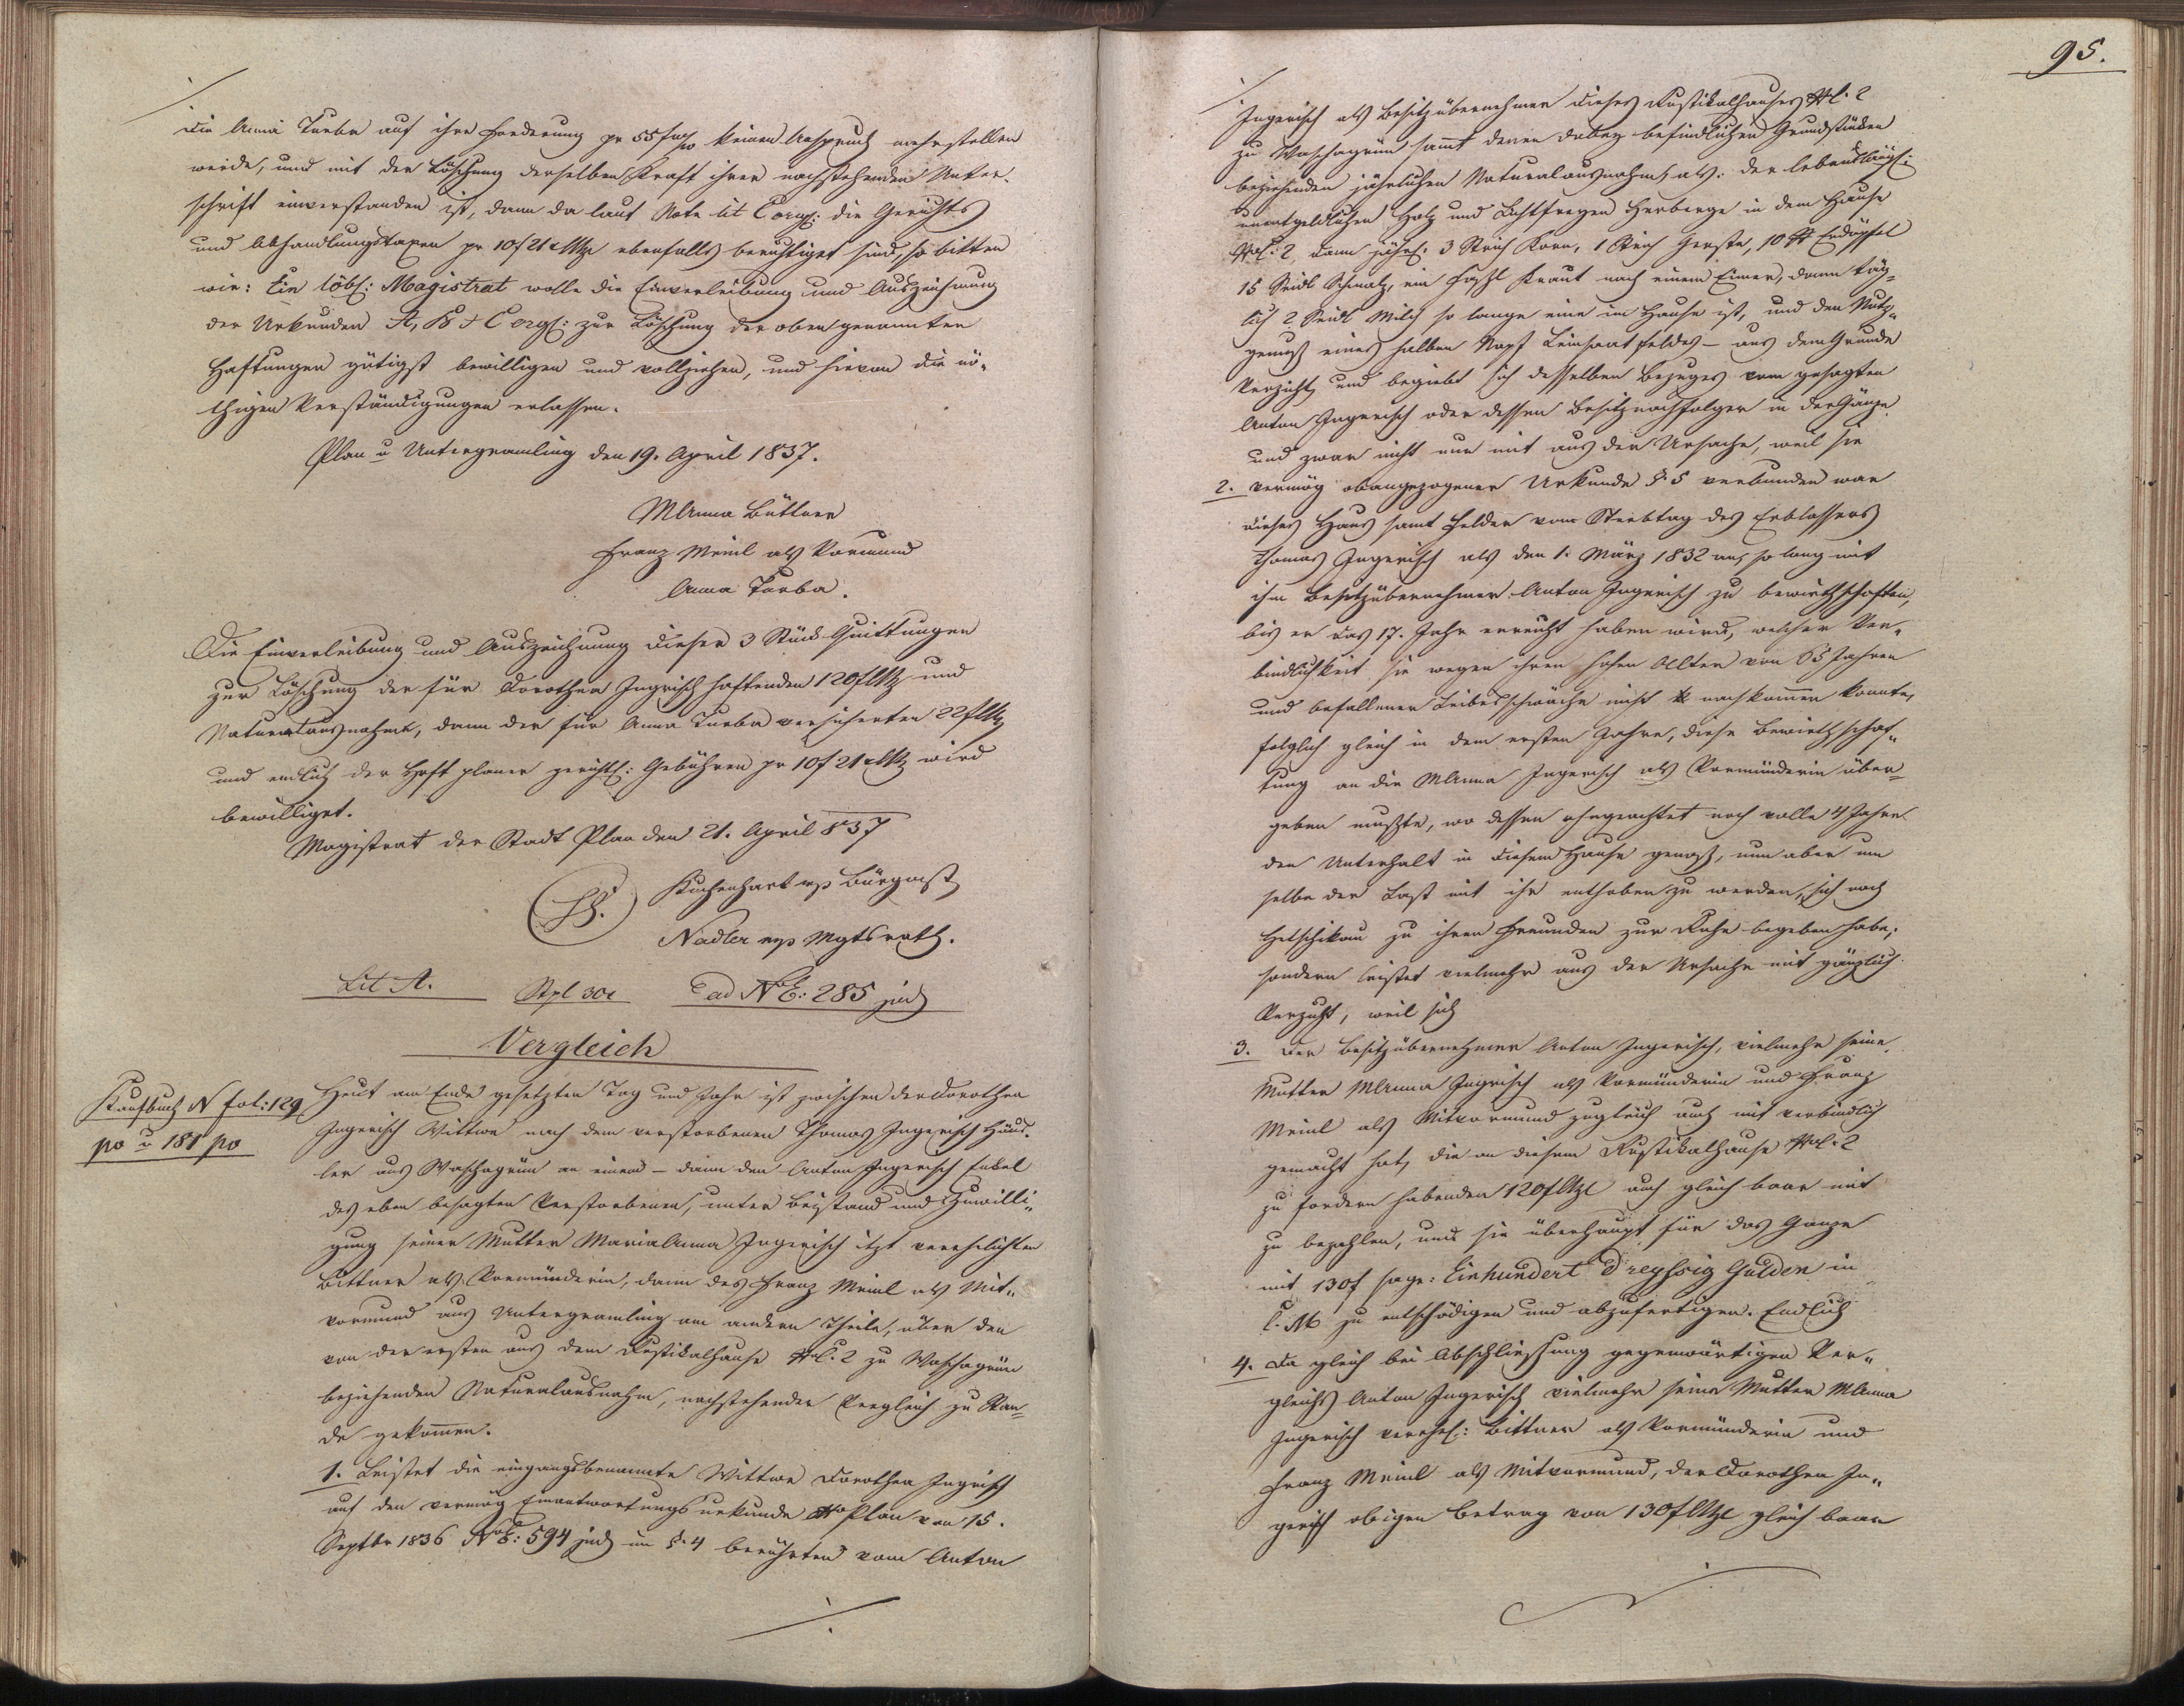 die Anna Turba auf ihre Forderung pr 55 f keinen Anspruch mehr stellen
werde, und mit der Löschung derselben Kraft ihrer nachstehenden Unter-
schrift einverstanden ist, dann da laut Nota lit C org: die Gerichts
und Abhandlungstaxen pr 10 f 21 x ebenfalls berichtiget sind, so bitten
wir: Ein löbl: Magistrat wolle die Einverleibung und Auszeichnung
der Urkunden A, B & C orgl: zur Löschung der oben genannten
Haftungen gütigst bewilligen und vollziehen, und hievon die nö-
thigen Verständigungen erlassen.
Plan u Untergramling den 19. April 1837.
MAnna Büttner
Franz Meinl als Vormund
Anna Turba.
Die Einverleibung und Auszeichnung dieser 3 Stück Quittungen
zur Löschung der für Dorothea Ingrisch haftenden 120 f und
Naturalausnahme, dann der für Anna Turba versicherten 22 f
und endlich der Haft planer gerichtl: Gebühren pr 10 f 21 x wird
bewilliget.
Magistrat der Stadt Plan den 21. April 837
Kuchenhart mp Bürgmst
Nadler mp Mgtsrath.
Lit A. Stpl 30x ad NE: 285 jud
Vergleich
Kaufbuch N fol: 129
po u 181 po
Heut am Ende gesetzten Tag und Jahr ist zwischen der Dorothea
Ingerisch Wittwe nach dem verstorbenen Thomas Ingerisch Häus-
ler aus Waschagrün an einem – dann den Anton Ingerisch Enkel
des eben besagten Verstorbenen, unter Beistand und Zuwilli-
gung seiner Mutter Maria Anna Ingerisch itzt verehelichten
Bittner als Vormünderin, dann des Franz Meinl als Mit-
vormund aus Untergramling am andern Theile, über den
von der ersten aus dem Rustikalhause NC. 2 zu Waschagrün
beziehenden Naturalausnahm, nachstehender Vergleich zu Stan-
de gekommen.
1. Leistet die eingangsbenannte Wittwe Dorothea Ingrisch
auf den vermög Einantwortungsurkunde Plan von 15.
Septbr 1836 NE: 594 jud im §. 4 berührten vom Anton
95.
Ingerisch als Besitzübernehmer dieses Rustikalhauses NC. 2
zu Waschagrün sammt denen dabey befindlichen Grundstücken
beziehenden jährlichen Naturalausnahm, als: der lebenslängl:
unentgeldlichen Holz und Lichtfreyen Herberge in dem Hause
NC: 2, dann jährl: 3 Strich Korn, 1 Strich Gerste, 10 Erdäpfel
15 Seidl Schmalz, ein Faßl Kraut nach einem Eimer, dann täg-
lich 2 Seidl Milch so lange eine im Hause ist, und den Nutz-
genuß eines halben Napf Leinsaatfeldes – aus dem Grunde
Verzicht, und begiebt sich desselben Bezuges vom gesagten
Anton Ingerisch oder dessen Besitznachfolger in der Gänze
und zwar nicht nur mit aus der Ursache, weil sie
2. vermög obangezogener Urkunde §. 5 verbunden war
dieses Haus samt Felder vom Sterbtag des Erblassers
Thomas Ingerisch als den 1. März 1832 an, so lang mit
ihm Besitzübernehmer Anton Ingerisch zu bewirthschaften,
bis er das 17. Jahr erreicht haben wird, welcher Ver-
bindlichkeit sie wegen ihren hohen Alter von 65 Jahren
und befallener Leibesschwäche nicht nachkommen konnte,
folglich gleich in dem ersten Jahre, diese Bewirthschaf-
tung an die MAnna Ingerisch als Vormünderin über-
geben mußte, wo dessen ohngeachtet noch volle 4 Jahre
den Unterhalt in diesem Hause genoß, nun aber um
selbe der Last mit ihr enthoben zu werden, sich nach
Hetschikau zu ihren Freunden zur Ruhe begeben habe;
sondern leistet vielmehr aus der Ursache mit gänzlich
Verzicht, weil sich
3. Der Besitzübernehmer Anton Ingerisch, vielmehr seine
Mutter MAnna Ingrisch als Vormünderin und Franz
Meinl als Mitvormund zugleich auch mit verbindlich
gemacht hat, die an diesem Rustikalhause NC. 2
zu fordern habenden 120 f auch gleich baar mit
zu bezahlen, und sie überhaupt für das Ganze
mit 130 f sage: Einhundert Dreyßig Gulden in
C. M zu entschädigen und abzufertigen. Endlich
4. Da gleich bei Abschliessung gegenwärtigen Ver-
gleichs Anton Ingerisch vielmehr seine Mutter MAnna
Ingerisch verehl: Bittner als Vormünderin und
Franz Meinl als Mitvormund, der Dorothea In-
gerisch obigen Betrag von 130 f gleich baar